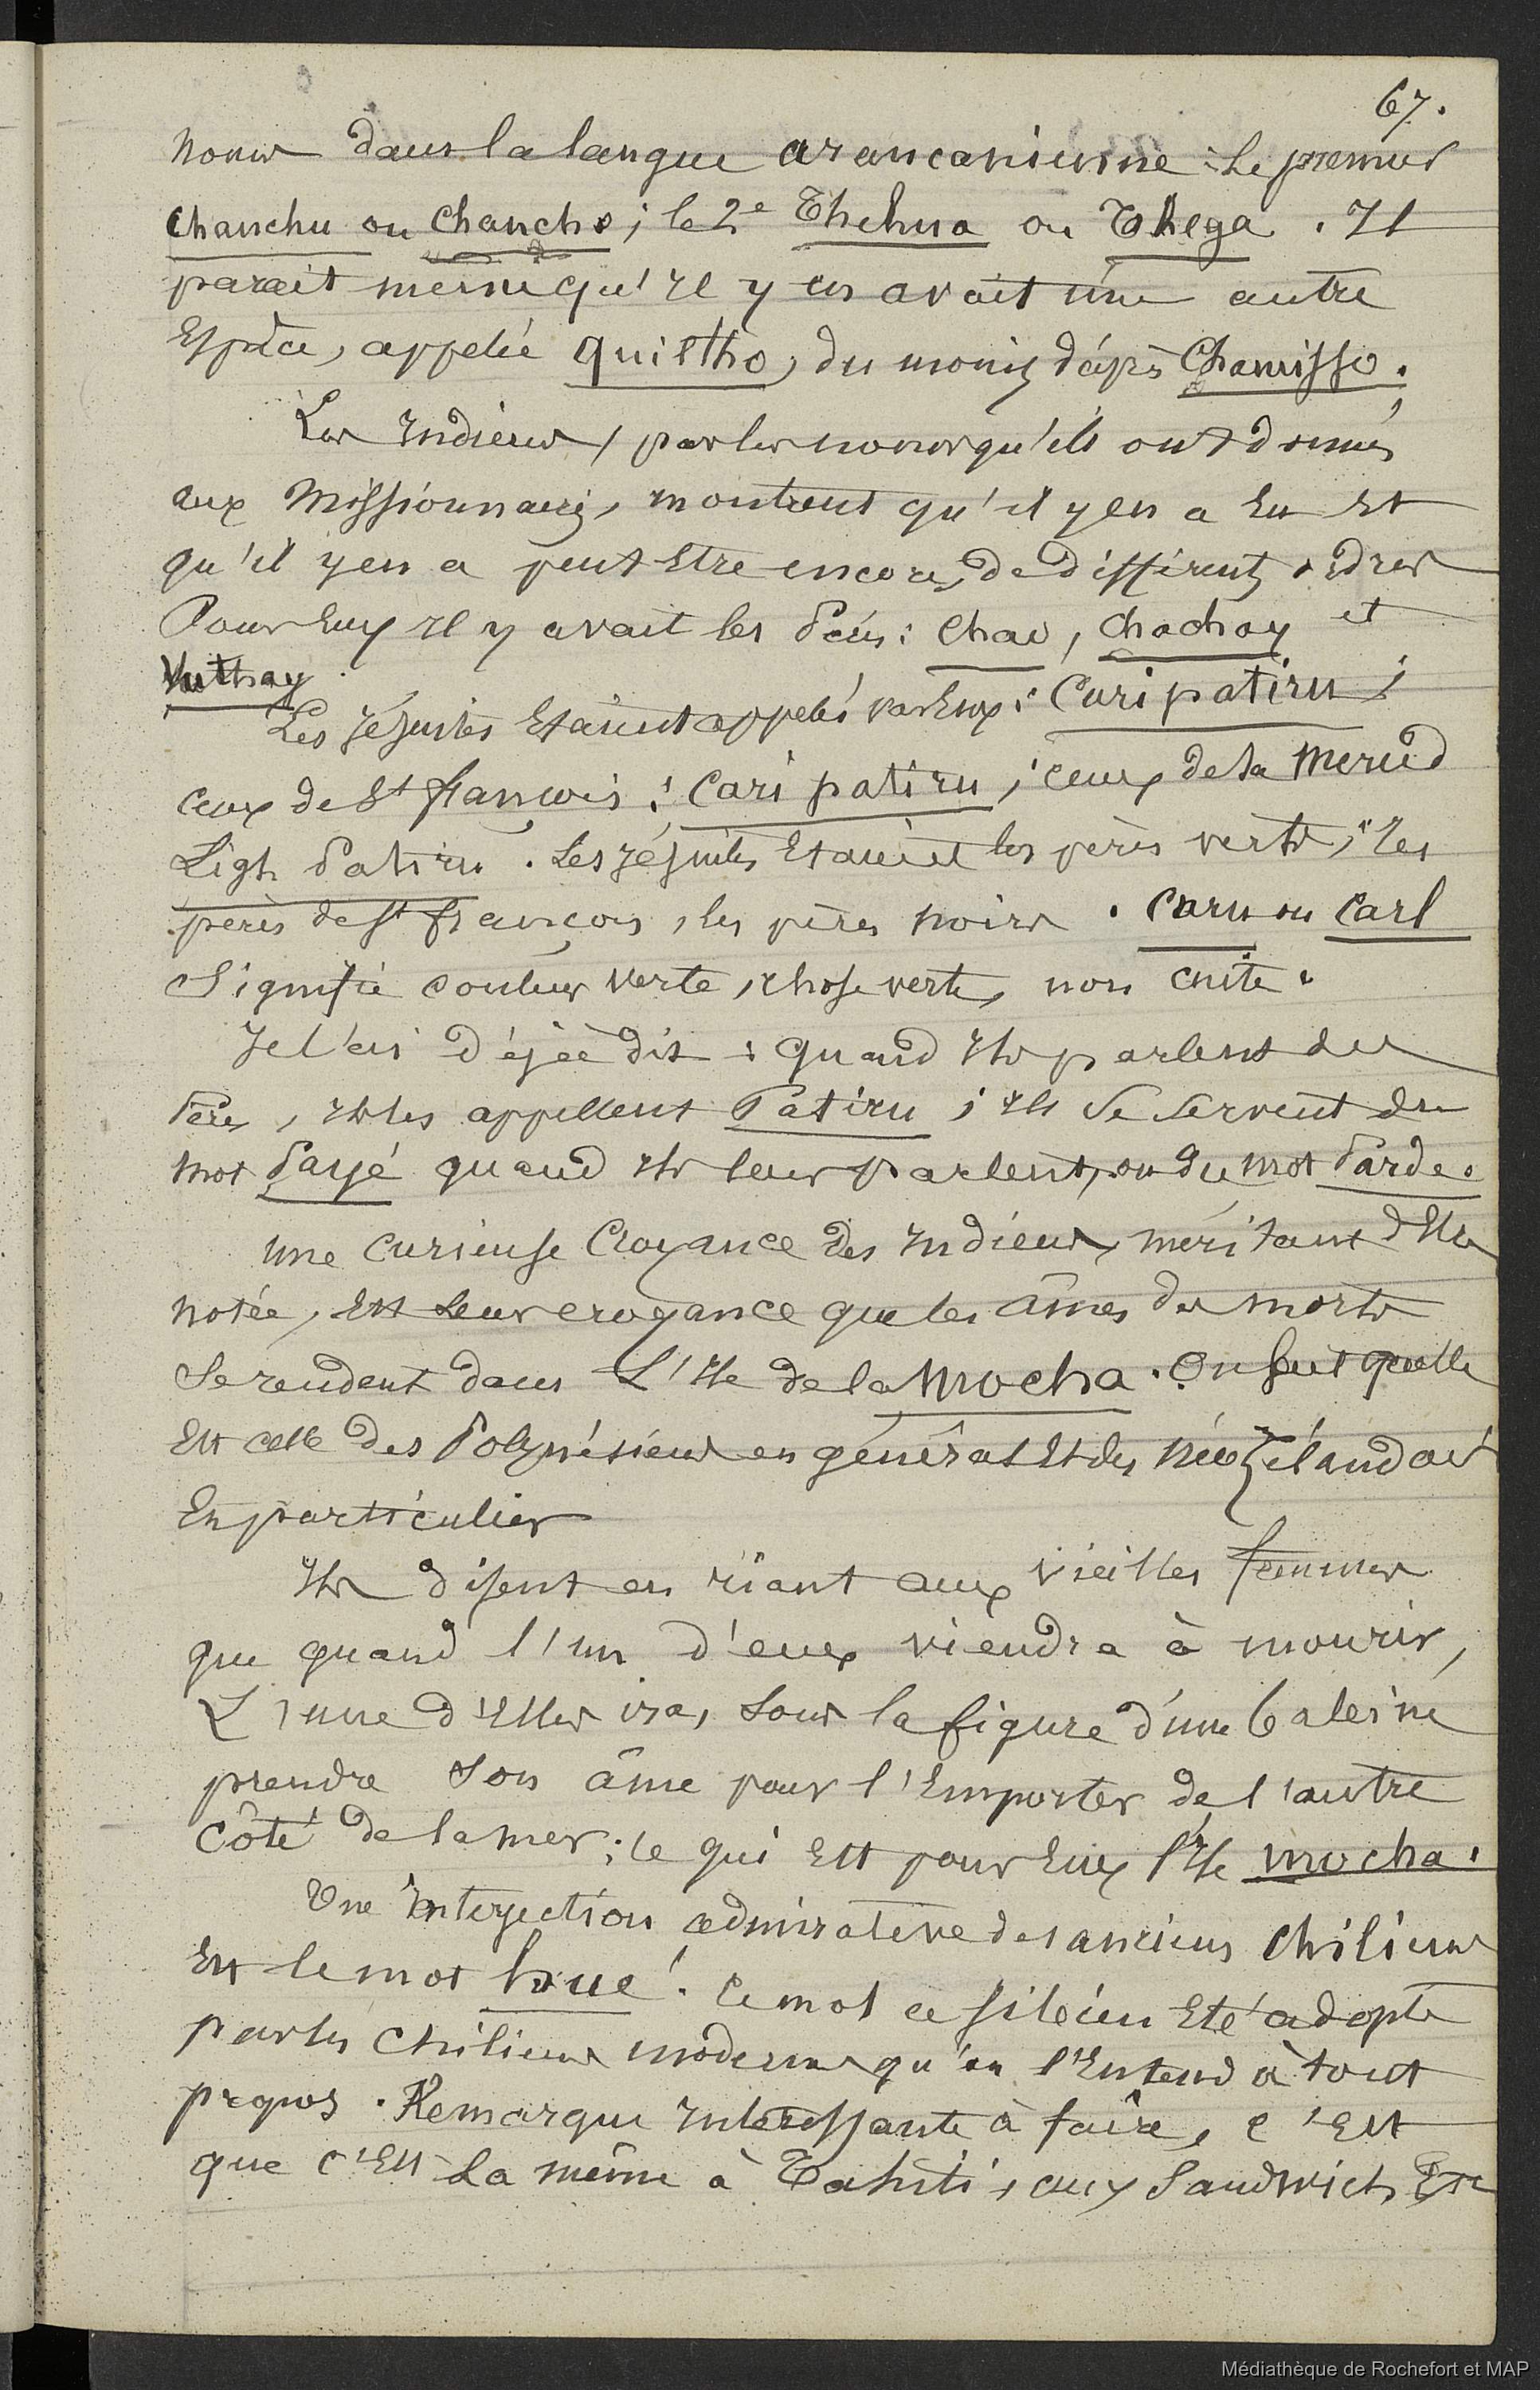 67.
noms dans la langue araucanienne : Le premier
Chanchu ou Chancho ; le 2e Thehua ou Thega . Il
parait meme qu'il y en avait une autre
Espèce, appelée quiltho, du moins d'après Chamisso.
Les Indiens, par les noms qu'ils ont donnés,
aux Missionnaires, montrent qu'il y en a Eu Et
qu'il y en a peut Etre encore, de différents ordres
Pour Eux Il y avait les Pères : Chao, Chachay et
Vuthay.
Les Jésuites Etaient appelés par Eux : Curi patiru ;
ceux de St françois : Cari patiru ; ceux de la Mercid
Ligh Patiru . Les Jésuites Etaient les pères verts ; les
pères de St françois, les pères noirs . Caru ou Carl
Signifie couleur verte, chose verte, non cuite.
Je l'ai déjà dit : quand Ils parlent des
Pères, Ils les appellent Patiru ; Ils Se Servent du
mot Payé quand Ils leur parlent, ou du mot Parde.
Une curieuse Croyance des Indiens, méritant d'Etre
notée, Est Leur croyance que les âmes des morts
Se rendent dans L'Ile de la Mocha . On Sait qu'elle
Est celle des Polynésiens en général Et des Néozélandais
En particulier
Ils disent en riant aux vieilles femmes
que quand l'un d'eux viendra à mourir,
L'une d'Elles ira, Sous la figure d'une baleine
prendre Son âme pour l'Emporter de l'autre
côté de la mer ; ce qui Est pour Eux l'Ile Mocha.
Une Interjection admirative des anciens Chiliens
Est le mot hué. Ce mot a si bien Eté adopté
par les Chiliens modernes qu'on l'Entend à tout
propos . Remarque Interessante à faire, c'Est
que c'Est La même à Tahiti, aux Sandwich, Etc
Médiathèque de Rochefort et MAP